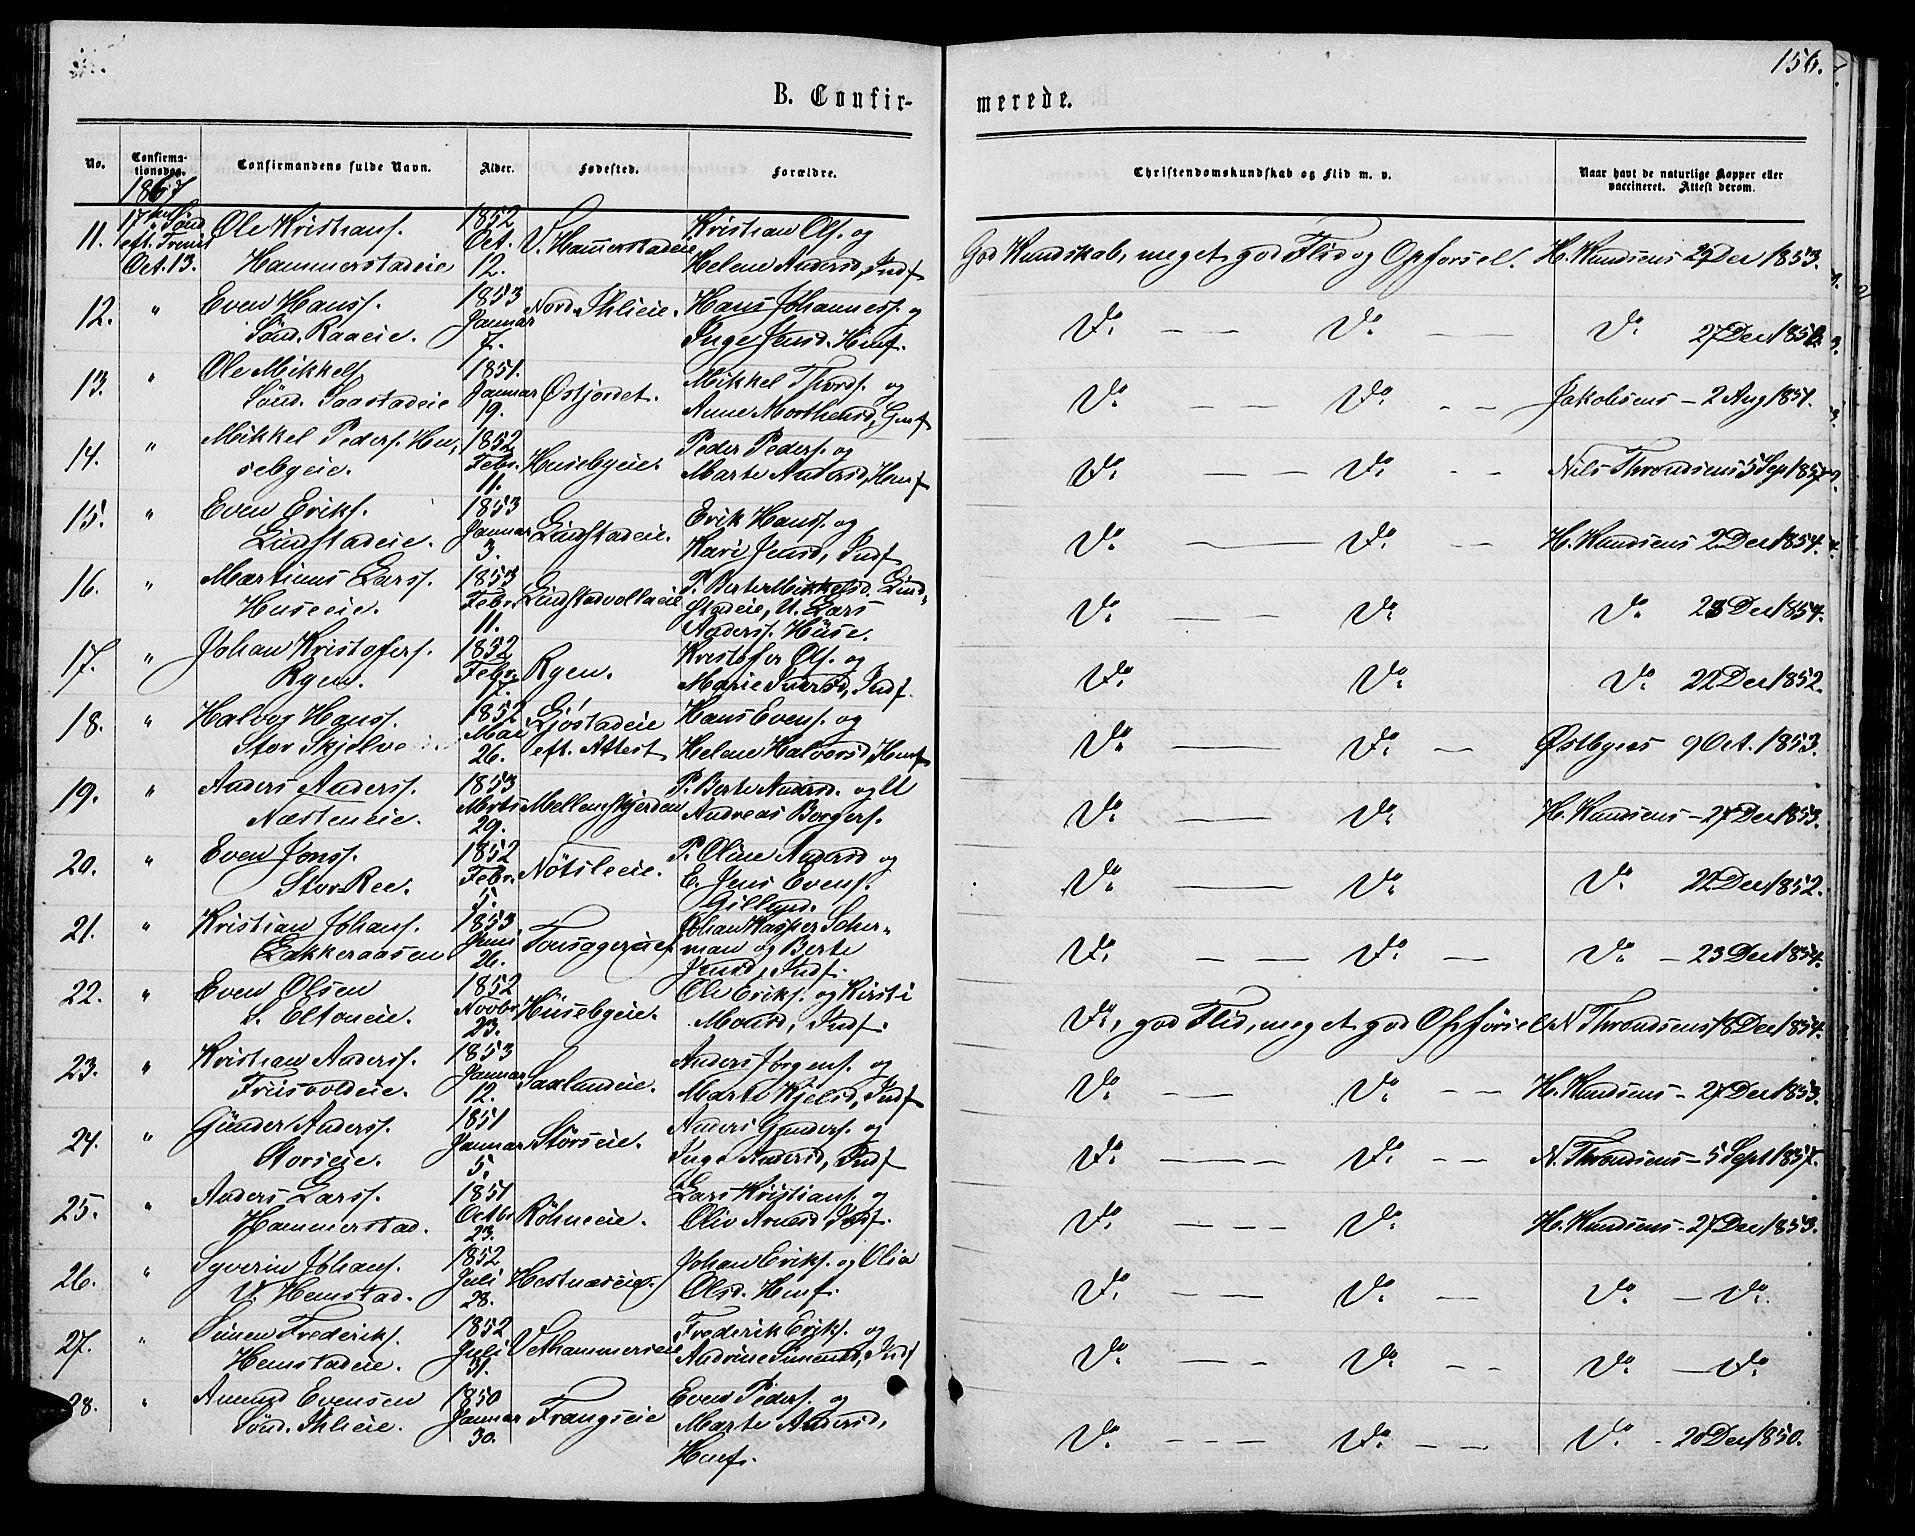 156.
B. Confir-
merede.
No.
Confirma-
tionsdag.
Confirmandens fulde Navn.
Alder.
Fødested.
Forældre.
Christendomskundskab og Flid m. v.
Naar havt de naturlige Kopper eller
vaccineret. Attest derom.
1867
11.
17de Sønd.
eft. Trinit
Oct. 13.
Ole Kristians.
Hammerstadeie
1852
Oct.
12.
V. Hammerstadeie
Kristian Ols. og
Helene Andersd, Indf
God Kundskab, meget god Flid og Opførsel.
H. Knudsens 27 Dec 1853.
12.
"
Even Hanss.
Sønd. Raaeie.
1853
Januar
7.
Nord. Ihlieie.
Hans Johanness. og
Inge Jensd. Hmf.
Do — — Do — —
Do 27 Dec 185
13.
"
Ole Mikkels.
Sønd. Saastadeie
1851.
Januar
19.
Østjordet.
Mikkel Thords. og
Anne Morthensd, Gmf
Do — — Do — —
Jakobsens — 2 Aug 1851.
14.
"
Mikkel Peders. Hu,
sebyeie.
1852
Febr.
11.
Husebyeie.
Peder Peders. og
Marte Andersd, Hmf
Do — — Do — —
Nils Throndsens 5 Sep 1857
15.
"
Even Eriks.
Lindstadeie.
1853
Januar
3.
Lindstadeie.
Erik Hanss. og
Kari Jensd, Indf
Do — — Do — —
H. Knudsens 2 Dec 1854.
16.
"
Martinus Larss.
Huseeie.
1853
Febr.
11.
Lindstadvollaeie
P. Berte Mikkelsd. Lind-
stadeie, U. Lars
Anderss. Huse.
Do — — Do —
Do 23 Dec 1854.
17.
"
Johan Kristofers.
Rgen.
1852
Febr.
17.
Rgen.
Kristofer Ols. og
Marie Iversd, Indf.
Do Do
Do 22 Dec 1852.
18.
"
Halvor Hans.
Stor Skjelve
1852
Mai
26.
Ljøstadeie
eft. Attest
Hans Evens. og
Helene Halvorsd, Hmf
Do — — Do —
Østbyes 9 Oct. 1853.
19.
"
Anders Anderss.
Næsteneie.
1853
Marts
29.
Mellemskjerden
P. Berte Andersd. og U
Andreas Borgers.
Do — — Do
H. Knudsens — 27 Dec 1853.
20.
"
Even Jenss.
Stor-Ree.
1852
Febr.
5.
Nötsleeie.
P. Oline Andersd og
E. Jens Evens.
Gillund.
Do — — Do
Do 22 Dec 1852.
21.
"
Kristian Johans.
Lakkeraasen
1853.
Juni
26.
Tonsagereie
Johan Kasper Scher-
man og Berte
Jensd, Indf.
Do — — Do —
Do — 23 Dec 1854.
22.
"
Even Olsen
S. Eltoneie.
1852
Novbr
23.
Husebyeie.
Ole Eriks. og Kirsti
Monsd, Indf.
Do, god Flid, meget god Opførsel
N Throndsens 18 Dec 1854.
23.
"
Kristian Anderss.
Friisvoldeie.
1853
Januar
12.
Saxlundeie.
Anders Jörgens. og
Marte Kjelsd, Indf
Do — — Do —
H. Knudsens - 27 Dec 1853.
24.
"
Gunder Anderss.
Storseie.
1851
Januar
5.
Störseie.
Anders Gunders. og
Inge Andersd, Indf
Do — — Do — —
N. Throndsens — 5 Sept 1857.
25.
"
Anders Larss.
Hammerstad.
1851
Octbr
23.
Röhneeie.
Lars Kristians. og
Oliv Arnesd Indf.
Do — — Do
H. Knudsens - 27 Dec 1853.
26.
"
Syverin Johans.
V. Hemstad.
1852
Juli
28.
Hestnæseie.
Johan Eriks. og Olia
Olsd. Hmf.
Do — — Do — —
Do — Do
27.
"
Simen Frederiks.
Hemstadeie.
1852
Juli
31.
Vethammerseie
Frederik Eriks. og
Andrine Simensd, Indf
Do — — Do — —
Do — Do
28.
"
Amund Evensen
Sönd. Ihlieie.
1850
Januar
30.
Frangseie
Even Peders. og
Marte Andersd,
Hmf.
Do — — Do — —
Do - 20 Dec 1850.